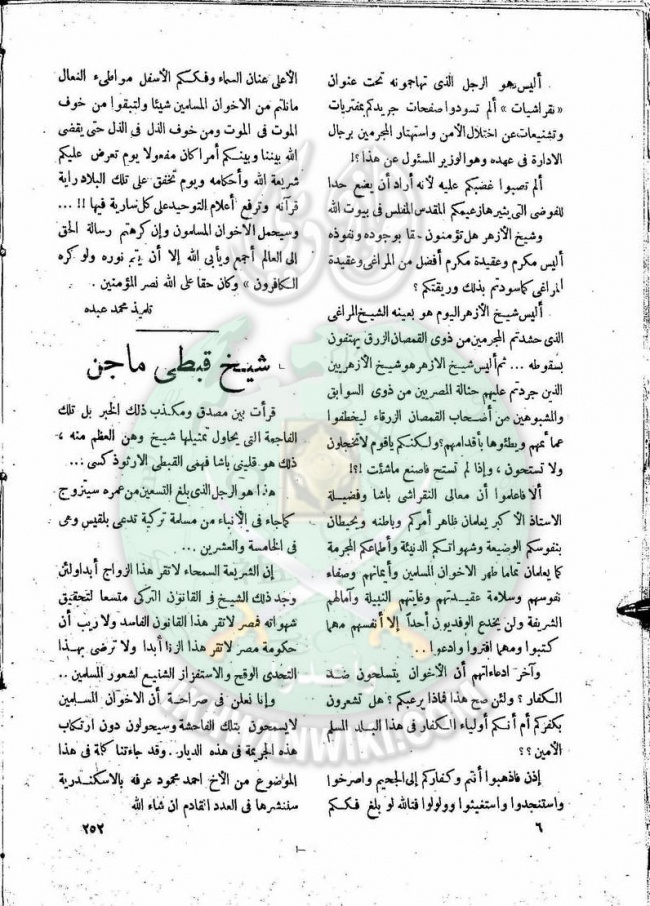 أليس هو الرجل الذى تهاجمونه تحت عنوان
« نقراشيات » ألم تسودوا صفحات جريدكم بمفتريات
وتشنيعات عن اختلال الأمن واستهتار المجرمين برجال
الادارة فى عهده وهو الوزير المسئول عن هذا ؟!
ألم تصبوا غضبكم عليه لأنه أراد أن يضع حدا
للفوضى التى يثيرها زعيمكم المقدس المفلس فى بيوت الله
وشيخ الأزهر هل تؤمنون حقا بوجوده ونفوذه
أليس مكرم وعقيدة مكرم أفضل من المراغى وعقيدة
المراغى كما سودتم بذلك وريقتكم ؟
أليس شيخ الأزهر اليوم هو بعينه الشيخ المراغى
الذى حشدتم المجرمين من ذوى القمصان الزرق يهتفون
بسقوطه ... ثم أليس شيخ الازهر هو شيخ الأزهريين
الذين جردتم عليهم حثالة المصريين من ذوى السوابق
والمشبوهين من أصحاب القمصان الزرقاء ليخطفوا
عمائمهم ويطئوها بأقدامهم ؟ ولكنكم ياقوم لاتخجلون
ولا تستحون ، وإذا لم تستح فاصنع ماشئت !؟!
ألا فاعلموا أن معالى النقراشى باشا وفضيلة
الاستاذ الأكبر يعلمان ظاهر أمركم وباطنه ويحيطان
بنفوسكم الوضيعة وشهواتكم الدنيئة وأطماعكم المجرمة
كما يعلمان تماما طهر الاخوان المسلمين وأيمانهم وصفاء
نفوسهم وسلامة عقيدتهم وغايتهم النبيلة وآمالهم
الشريفة ولن يخدع الوفديون أحداً إلا أنفسهم مهما
كتبوا ومهما افتروا وادعوا ..
وآخر ادعاءاتهم أن الأخوان يتسلحون ضد
الكفار ؟ ولئن صح هذا فماذا يرعبكم ؟ هل تشعرون
بكفركم أم أنكم أولياء الكفار فى هذا البلد المسلم
الأمين ؟؟
إذن فاذهبوا أنتم وكفاركم إلى الجحيم واصرخوا
واستنجدوا واستغيثوا وولولوا فتالله لو بلغ فككم
٦
الأعلى عنان السماء وفككم الأسفل مواطىء النعال
مانلتم من الاخوان المسلمين شيئا ولتبقوا من خوف
الموت فى الموت ومن خوف الذل فى الذل حتى يقضى
الله بيننا وبينكم أمرا كان مفعولا يوم تعرض عليكم
شريعة الله وأحكامه ويوم تخفق على تلك البلاد راية
قرآنه وترفع أعلام التوحيد على كل سارية فيها !! ...
وسيحمل الاخوان المسلمون وإن كرهتم رسالة الحق
الى العالم أجمع ويأبى الله إلا أن يتم نوره ولو كره
الكافرون « وكان حقا على الله نصر المؤمنين .
تلميذ محمد عبده
شيخ قبطى ماجن
قرأت بين مصدق ومكذب ذلك الخبر بل تلك
الفاجعة التى يحاول تمثيلها شيخ وهن العظم منه ،
ذلك هو قلينى باشا فهمى القبطى الارثوذكسى ...
هذا هو الرجل الذى بلغ التسعين من عمره سيتزوج
كما جاء فى الأنباء من مسلمة تركية تدعى بلقيس وهى
فى الخامسة والعشرين ...
إن الشريعة السمحاء لاتقر هذا الزواج أبدا ولئن
وجد ذلك الشيخ فى القانون التركى متسعا لتحقيق
شهواته فمصر لاتقر هذا القانون الفاسد ولا ريب أن
حكومة مصر لاتقر هذا الزنا أبدا ولا ترضى بهذا
التحدى الوقح والاستفزاز الشنيع لشعور المسلمين ..
وإنا نعلن فى صراحة أن الاخوان المسلمين
لايسمحون بتلك الفاحشة وسيحولون دون ارتكاب
هذه الجريمة فى هذه الديار. وقد جاءتنا كلمة فى هذا
الموضوع من الأخ احمد محمود عرفه بالاسكندرية
سننشرها فى العدد القادم ان شاء الله
٢٥٢